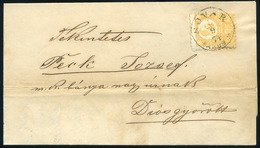 Tekintetes
Peck József
m. k. bánya nagy úrnak
Diósgyőrött